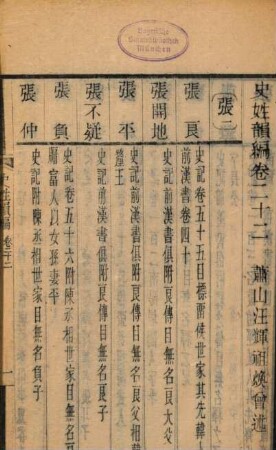 史姓韻編卷二十二　蕭山汪輝祖煥曾述
張二
張良　史記卷五十五目標留侯世家其先韓人
前漢書卷四十
張開地　史記前漢書俱附良傳目無名良大父
張平　史記前漢書俱附良傳目無名良父相韓
釐王
張不疑　史記前漢書俱附良傳目無名良子
張負　史記卷五十六附陳丞相世家目無名
富人以女孫妻平
張仲　史記附陳丞相世家目無名負子
史姓韻編　卷二十二　一